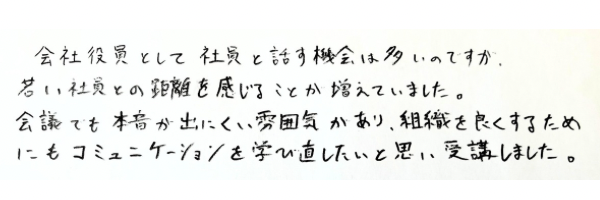 会社役員として社員と話す機会は多いのですが、
若い社員との距離を感じることが増えていました。
会議でも本音が出にくい雰囲気があり、組織を良くするため
にもコミュニケーションを学び直したいと思い受講しました。